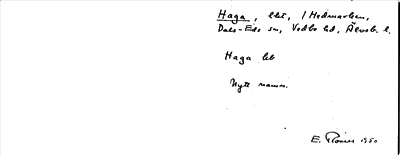 Haga, lht, i Hedmarken,
Dals-Eds sn, Vedbo hd, Älvsb. l.
Haga
Nytt namn.
E. 1950